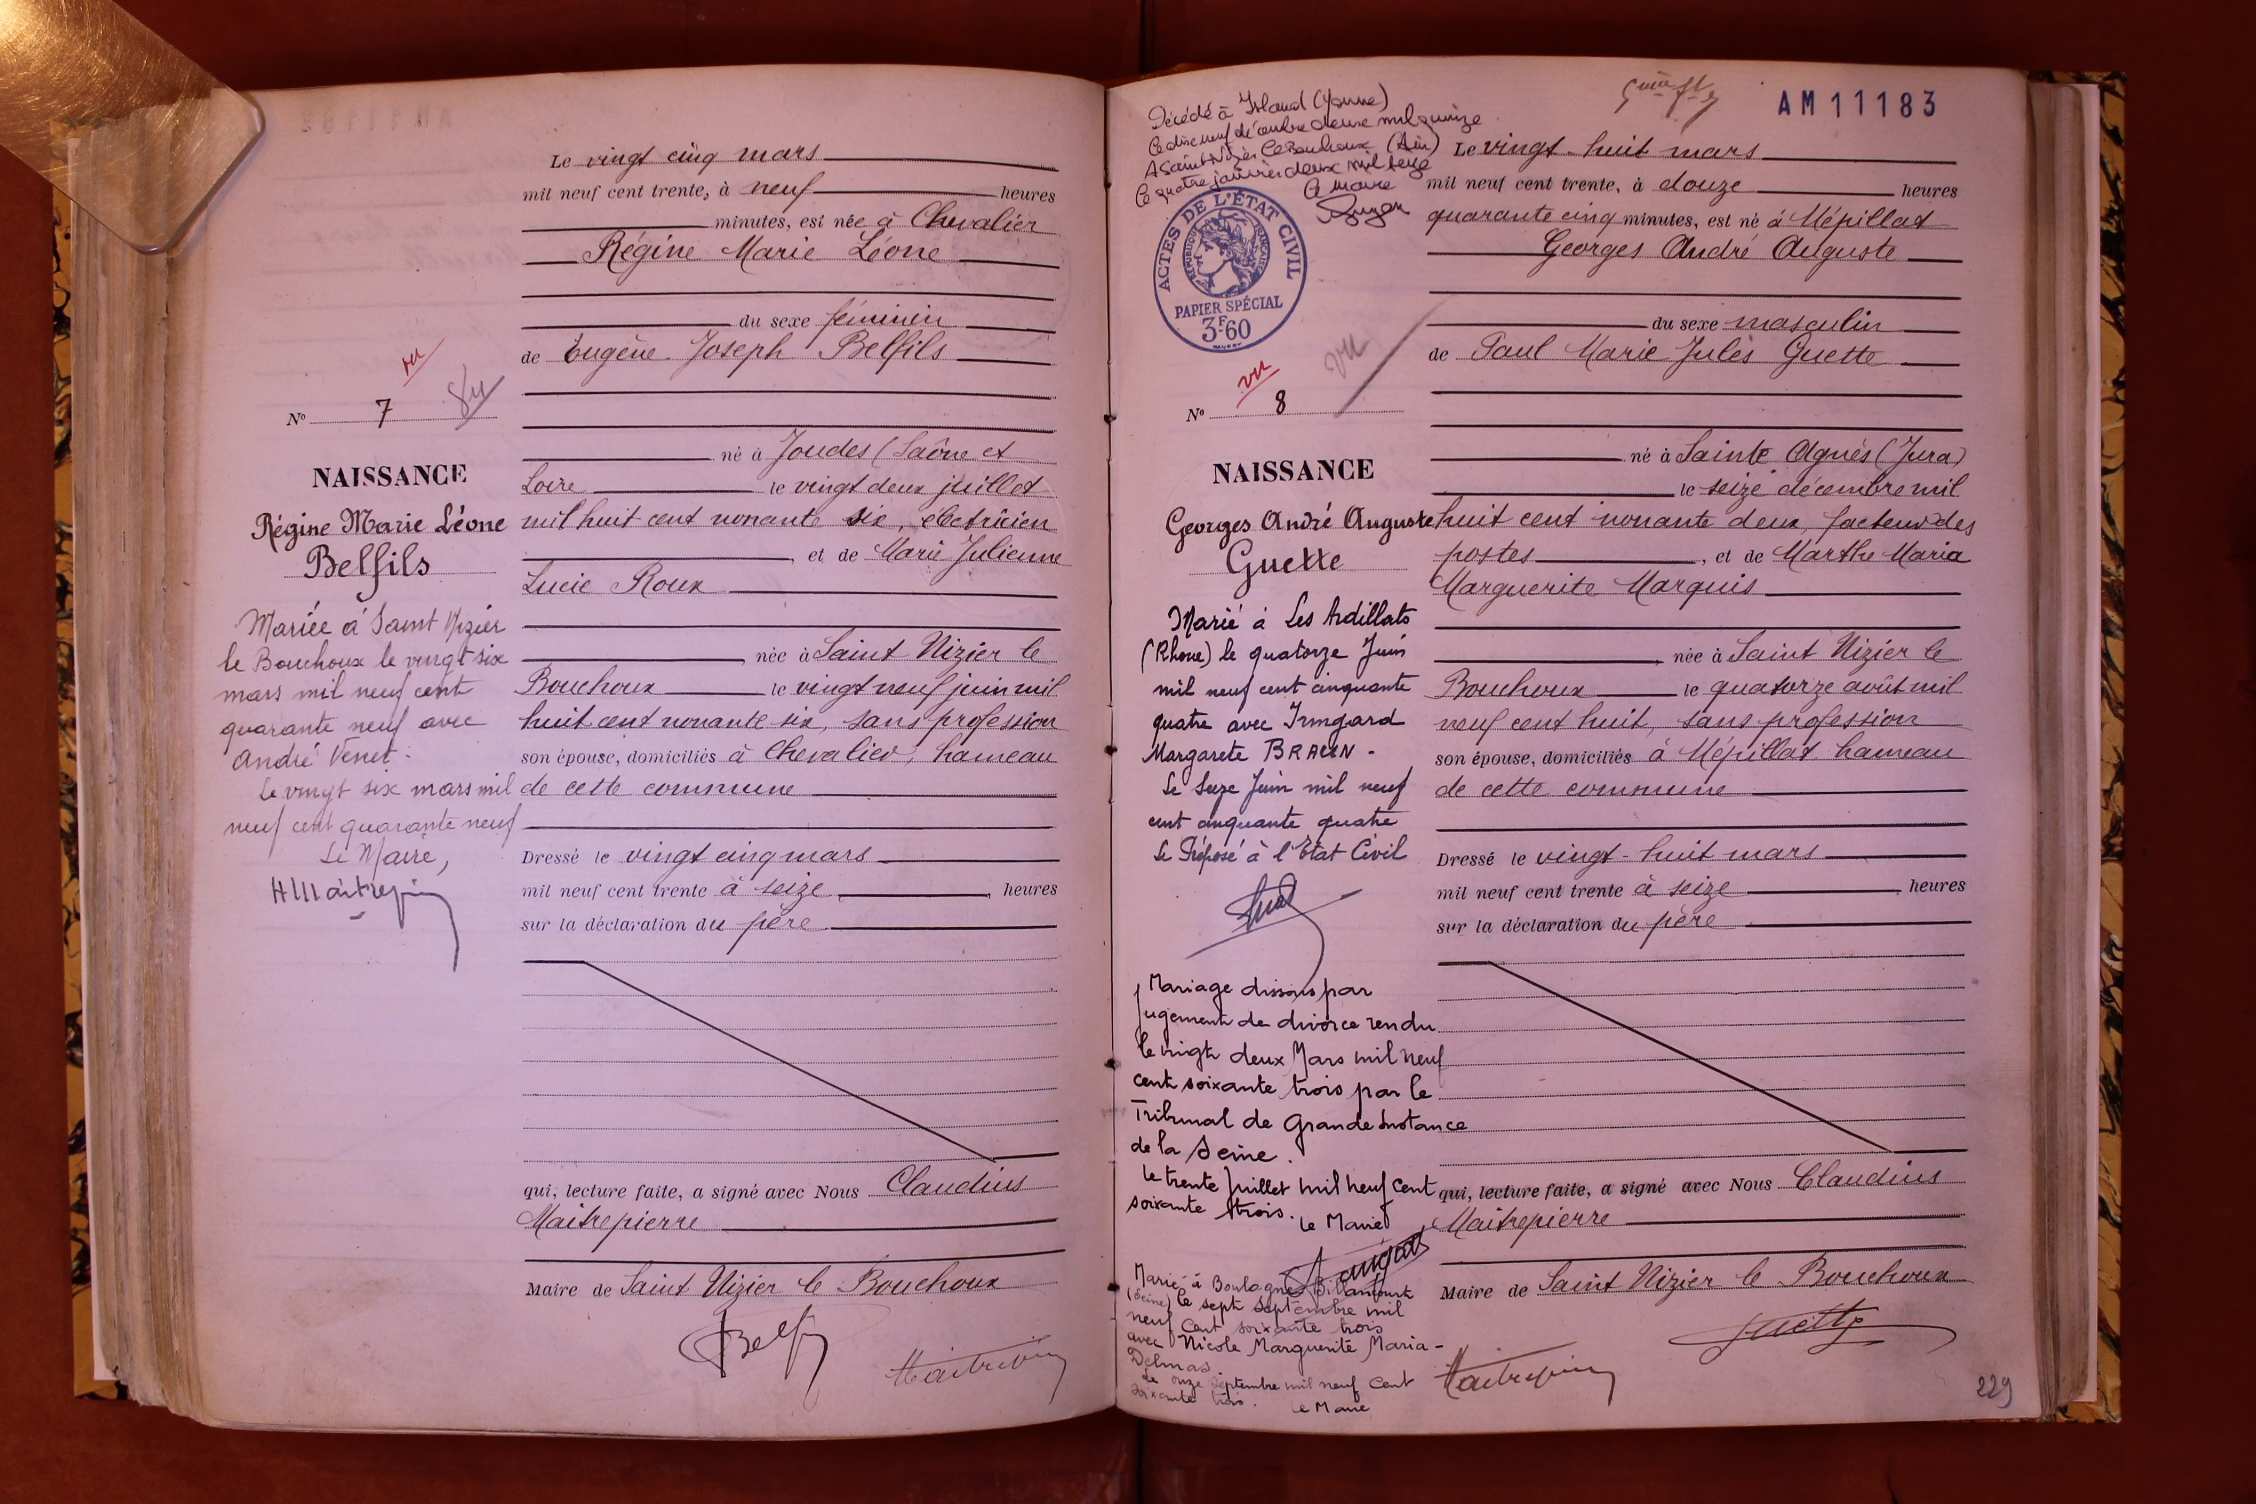 Le vingt cinq mars
mil neuf cent trente, à neuf heures
minutes, est née à Chevalier
Régine Marie Léone
du sexe féminin
de Eugène Joseph Belfils
vu
No 7
né à Joudes (Saône et
Loire le vingt deux juillet
mil huit cent nonante six, électricien
et de Marie Julienne
Lucie Roux
née à Saint Nizier le
Bouchoux le vingt neuf juin mil
huit cent nonante six, sans profession
son épouse, domiciliés à Chevalier, hameau
de cette commune
Dressé le vingt cinq mars
mil neuf cent trente à seize, heures
sur la déclaration du père
qui, lecture faite, a signé avec Nous Claudius
Maitrepierre
Maire de Saint Nizier le Bouchoux
NAISSANCE
Régine Marie Léone
Belfils
Mariée à Saint Nizier
le Bouchoux le vingt six
mars mil neuf cent
quarante neuf avec
André Venet.
Le vingt six mars mil
neuf cent quarante neuf
Le Maire,
HMaitrepierre
Belfils
Maitrepierre
AM 11183
Décédé à Island (Yonne)
le dix neuf décembre deux mil quinze
A Saint Nizier le Bouchoux (Ain)
le quatre janvier deux mil seize
le maire
ACTES DE L'ÉTAT CIVIL
RÉPUBLIQUE FRANÇAISE
PAPIER SPÉCIAL
3F60
vu
vu
No 8
NAISSANCE
Georges André Auguste
Guette
Marié à Les Ardillats
(Rhone) le quatorze Juin
mil neuf cent cinquante
quatre avec Irmgard
Margarete BRAUN -
Le Seize Juin mil neuf
cent cinquante quatre
Le Préposé à l'Etat Civil
Mariage dissous par
jugement de divorce rendu
le vingt deux Mars mil neuf
cent soixante trois par le
Tribunal de Grande Instance
de la Seine.
Le trente Juillet mil neuf cent
soixante trois. le Maire
Marié à Boulogne Billancourt
(Seine) le sept septembre mil
neuf cent soixante trois
avec Nicole Marguerite Maria-
Delmas.
Le onze septembre mil neuf cent
soixante trois. le Maire
Le vingt-huit mars
mil neuf cent trente, à douze heures
quarante cinq minutes, est né à Mépillat
Georges André Auguste
du sexe masculin
de Paul Marie Jules Guette
né à Sainte Agnès (Jura)
le seize décembre mil
huit cent nonante deux, facteur des
postes, et de Marthe Maria
Marguerite Marquis
née à Saint Nizier le
Bouchoux le quatorze août mil
neuf cent huit, sans profession
son épouse, domiciliés à Mépillat hameau
de cette commune
Dressé le vingt-huit mars
mil neuf cent trente à seize, heures
sur la déclaration du père
qui, lecture faite, a signé avec Nous Claudius
Maitrepierre
Maire de Saint Nizier le Bouchoux
Guette
Maitrepierre
229